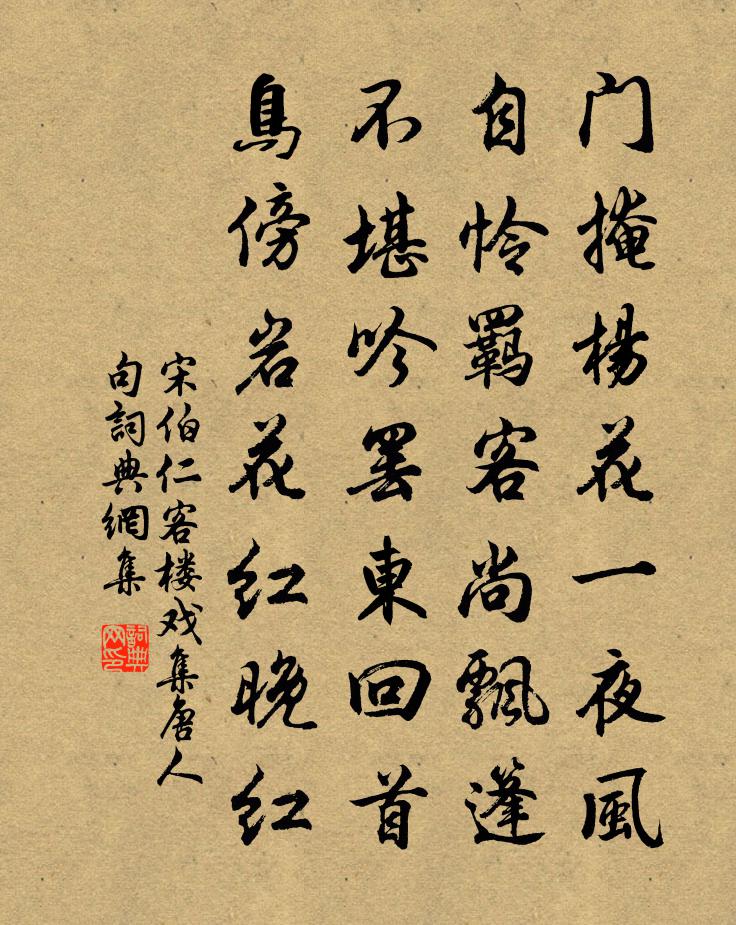 门掩楊花一夜風
自怜羁客尚飄蓬
不堪吟罢東回首
鳥傍岩花红晚红
宋伯仁客楼戏集唐人
句詞典網集
詞典
网印